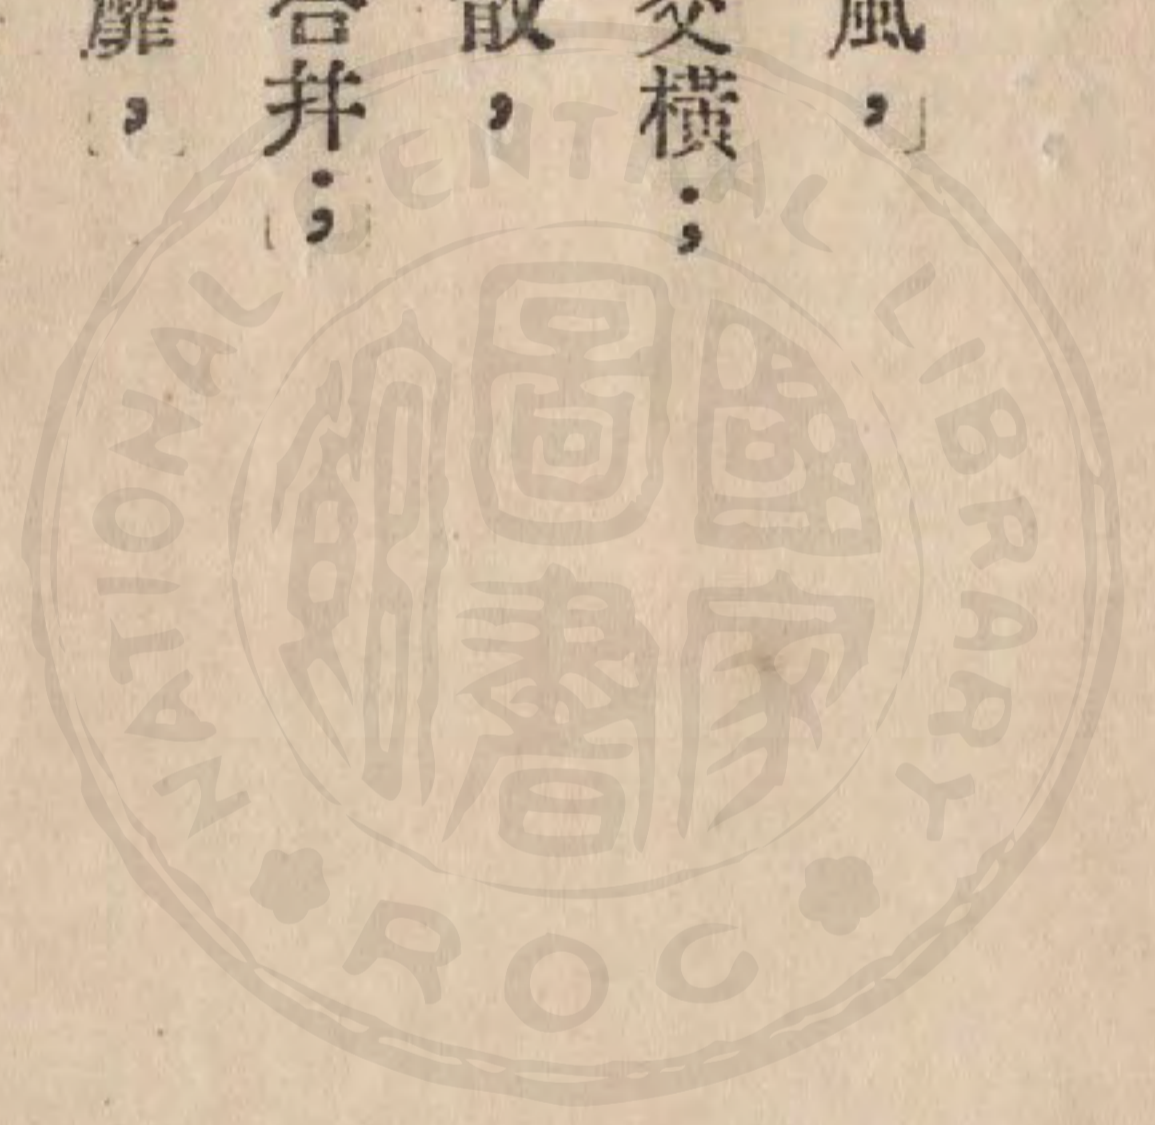 風，
交橫；
散，
合幷；
靡，
NATIONAL CENTRAL LIBRARY
國家
圖書
館
ROC